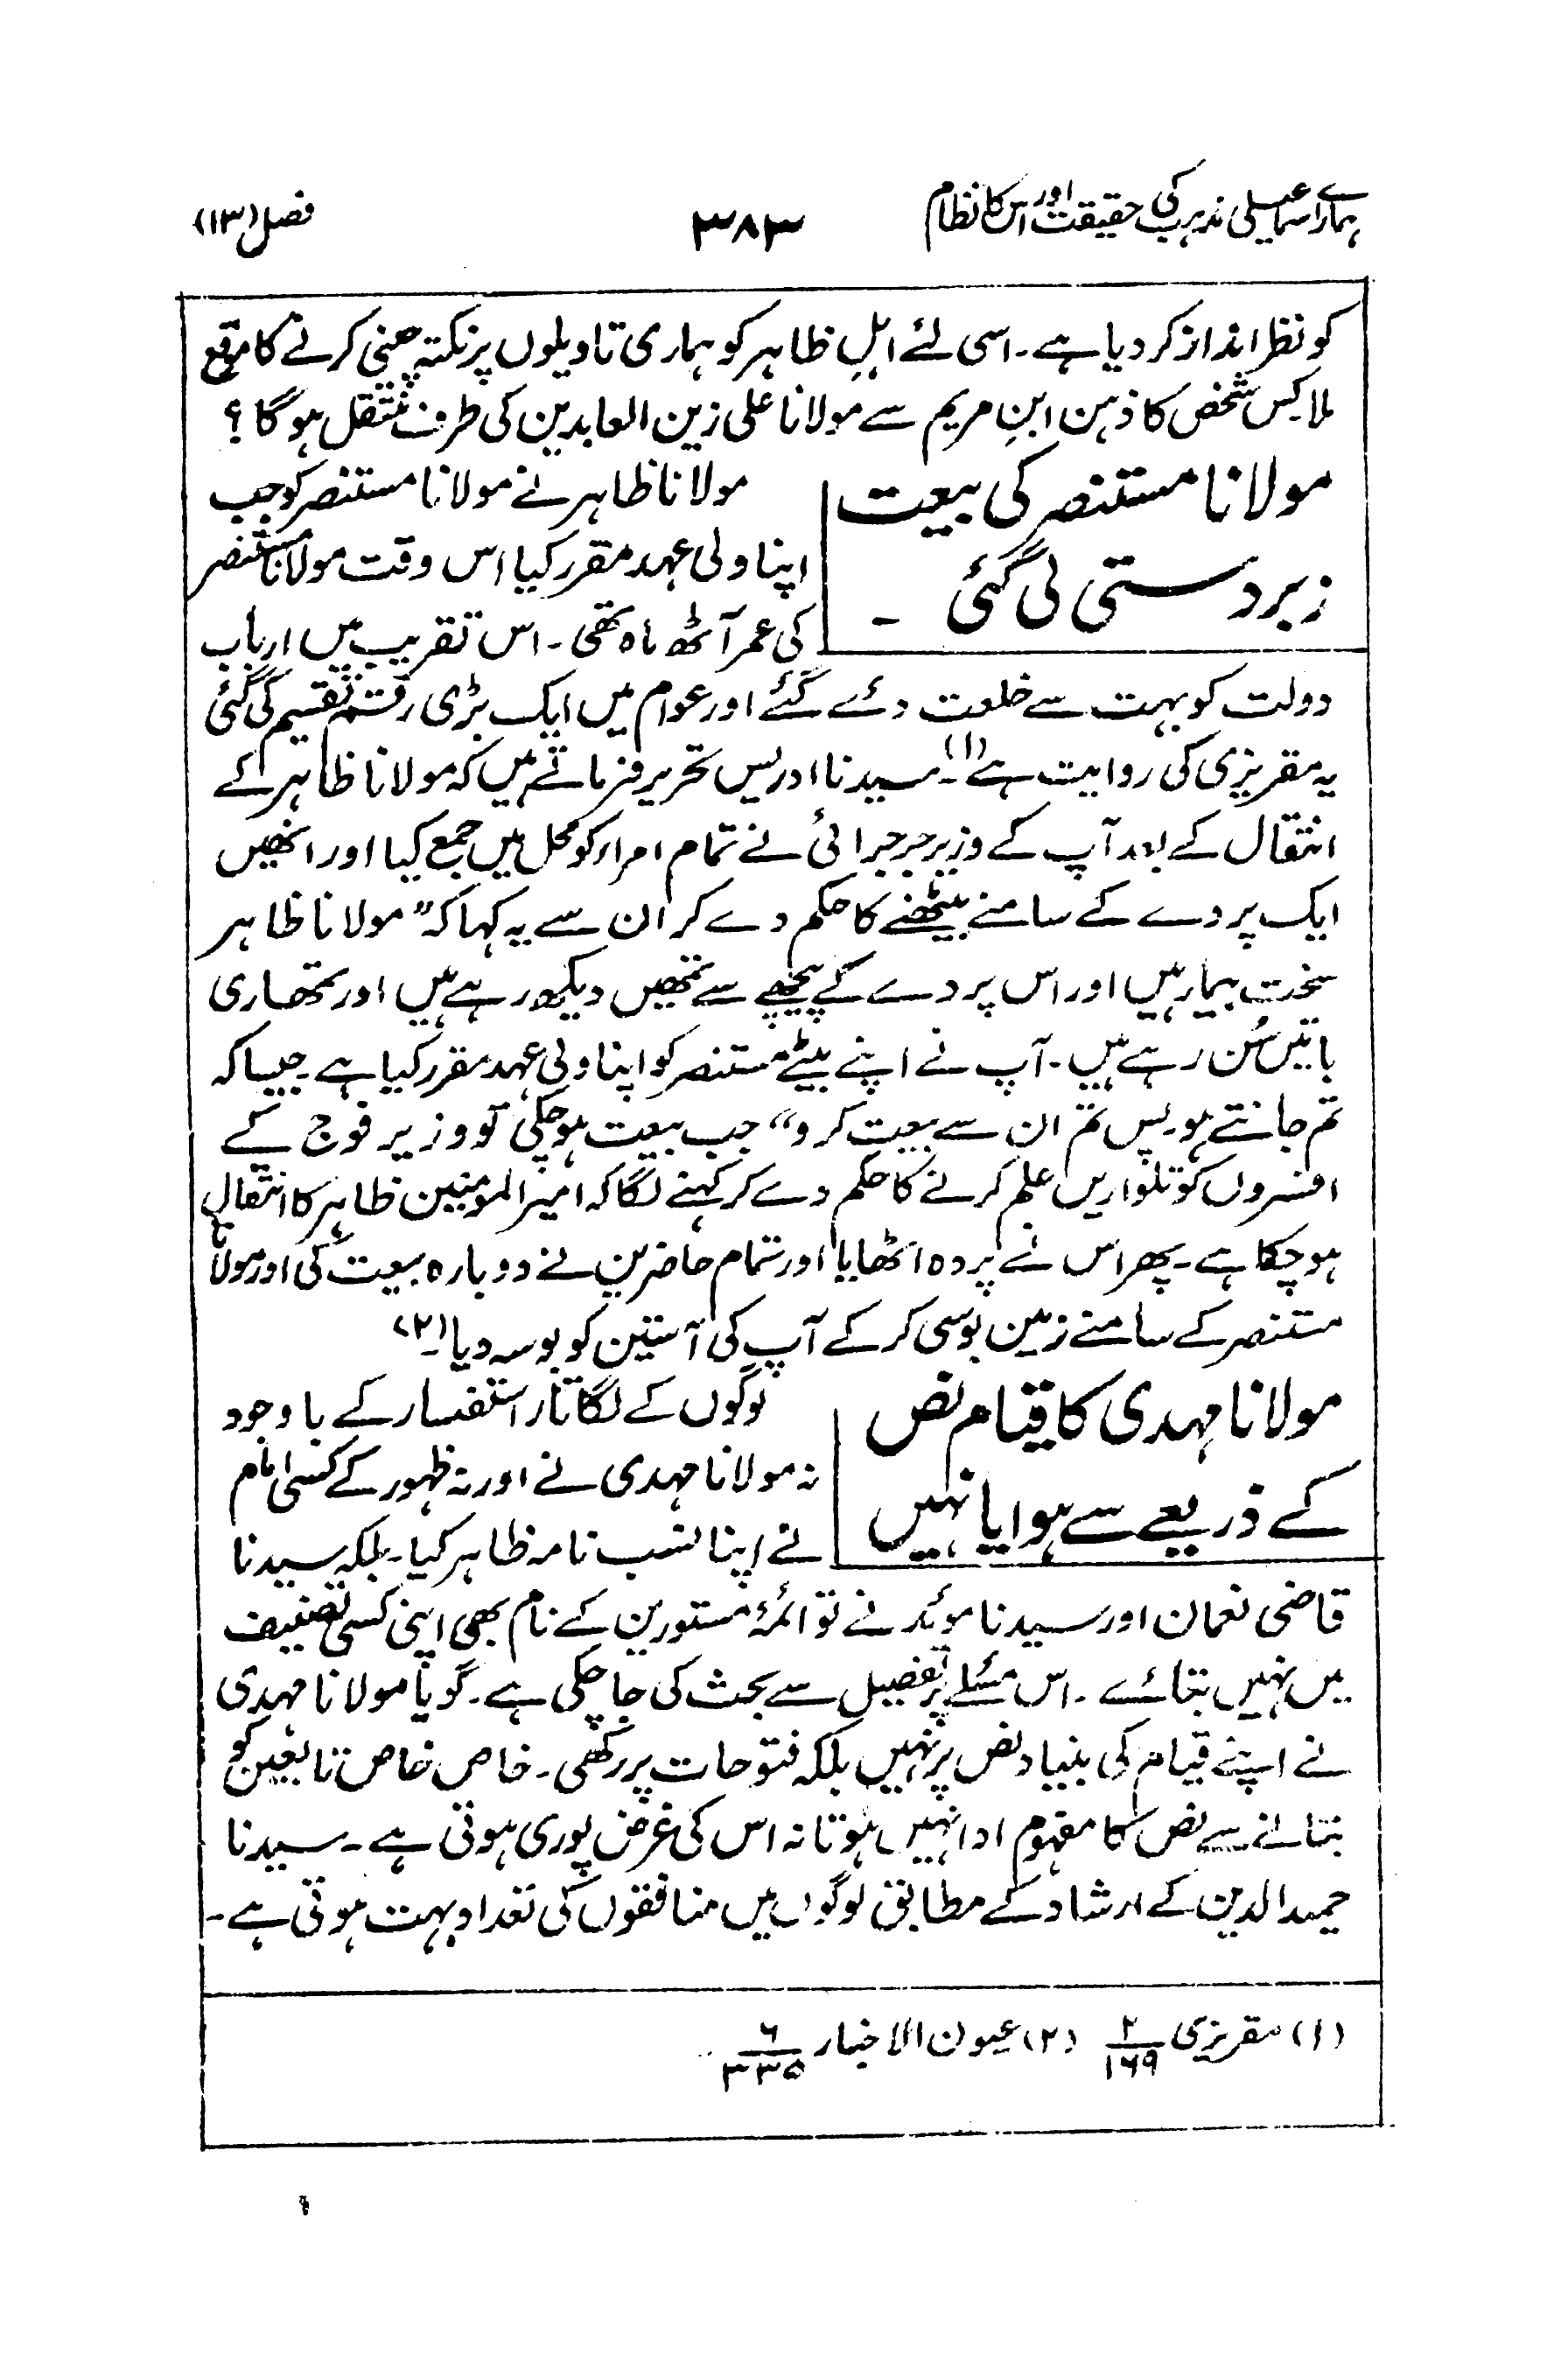 ہمارے اسماعیلی مذہب کی حقیقت اور اس کا نظام ۳۸۳ فصل (۱۳)
کو نظر انداز کر دیا ہے۔ اسی لئے اہلِ ظاہر کو ہماری تاویلوں پر نکتہ چینی کرنے کا موقع
ملا۔ کس شخص کا ذہن ابنِ مریم سے مولانا علی زین العابدین کی طرف منتقل ہوگا؟
مولانا مستنصر کی بیعت
زبردستی لی گئی ۔
مولانا ظاہر نے مولانا مستنصر کو جب
اپنا ولی عہد مقرر کیا اس وقت مولانا مستنصر
کی عمر آٹھ ماہ تھی۔ اس تقریب میں ارباب
دولت کو بہت سے خلعت دئے گئے اور عوام میں ایک بڑی رقم تقسیم کی گئی
یہ مقریزی کی روایت ہے (۱)۔ سیدنا ادریس تحریر فرماتے ہیں کہ مولانا ظاہر کے
انتقال کے بعد آپ کے وزیر جرجرائی نے تمام امراء کو محل میں جمع کیا اور انھیں
ایک پردے کے سامنے بیٹھنے کا حکم دے کر ان سے یہ کہا کہ ”مولانا ظاہر
سخت بیمار ہیں اور اس پردے کے پیچھے سے تمھیں دیکھ رہے ہیں اور تمھاری
باتیں سُن رہے ہیں۔ آپ نے اپنے بیٹے مستنصر کو اپنا ولی عہد مقرر کیا ہے۔ جیسا کہ
تم جانتے ہو۔ پس تم ان سے بیعت کرو“ جب بیعت ہو چکی تو وزیر فوج کے
افسروں کو تلواریں علم کرنے کا حکم دے کر کہنے لگا کہ امیر المومنین ظاہر کا انتقال
ہو چکا ہے۔ پھر اس نے پردہ اٹھایا اور تمام حاضرین نے دوبارہ بیعت کی اور مولانا
مستنصر کے سامنے زمین بوسی کر کے آپ کی آستین کو بوسہ دیا۔ (۲)
مولانا مہدی کا قیام نص
کے ذریعے سے ہوا یا نہیں
لوگوں کے لگاتار استفسار کے باوجود
نہ مولانا مہدی نے اور نہ ظہور کے کسی امام
نے اپنا نسب نامہ ظاہر کیا۔ بلکہ سیدنا
قاضی نعمان اور سیدنا موئد نے تو ائمۂ مستورین کے نام بھی اپنی کسی تصنیف
میں نہیں بتائے ۔ اس مسئلے پر تفصیل سے بحث کی جا چکی ہے۔ گویا مولانا مہدی
نے اپنے قیام کی بنیاد نص پر نہیں بلکہ فتوحات پر رکھی۔ خاص خاص تابعین کو
بتانے سے نص کا مفہوم ادا نہیں ہوتا نہ اس کی غرض پوری ہوتی ہے۔ سیدنا
حمید الدین کے ارشاد کے مطابق لوگوں میں منافقوں کی تعداد بہت ہوتی ہے۔
(۱) مقریزی ۲/۱۶۹ (۲) عیون الاخبار ۶/۳۳۵